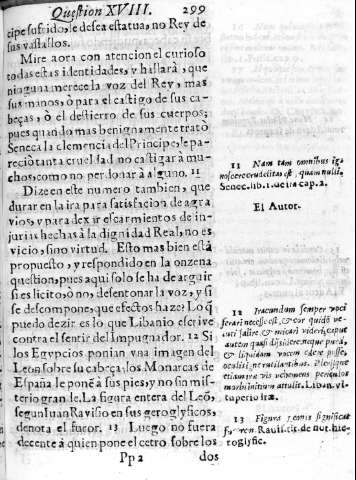 Question XVIII. 299
cipe sufrido, le desea estatua, no Rey de
sus vasallos.
Mire aora con atencion el curioso
todas estas identidades, y hallarà, que
ninguna merece la voz del Rey, mas
sus manos, ò para el castigo de sus ca-
beças, ò el destierro de sus cuerpos;
pues quando mas benignamente tratò
Seneca la clemencia del Principe, le pa-
reciò tanta crueldad no castigar à mu-
chos, como no perdonar à alguno. 11
Dize en este numero tambien, que
durar en la ira para satisfacion de agra
vios, y para dexir escarmientos de in-
jurias hechas à la dignidad Real, no es
vicio, sino virtud. Esto mas bien està
propuesto, y respondido en la onzena
question, pues aqui solo se ha de arguir
si es licito, ò no, desentonar la voz, y si
se descompone, que efectos haze? Lo q̃
puedo dezir es lo que Libanio escrive
contra el sentir del Impugnador. 12 Si
los Egypcios ponian vna imagen del
Leon sobre su cabeça, los Monarcas de
España le ponẽ à sus pies, y no sin mis-
terio grande. La figura entera del Leõ,
segun Iuan Ravisio en sus geroglyficos,
denota el furor. 13 Luego no fuera
decente à quien pone el cetro sobre los
Pp 2 dos
11 Nam tam omnibus ig-
noscere crudelitas est, quam nulli.
Senec. lib. 1. de ira cap. 2.
El Autor.
12 Iracundum semper voci
ferari necesse est, & cur quidẽ ve-
luti salire & micari videri, caput
autem quasi disjici, eremque purã,
& lipidam vocem edere posse,
oculis, nec rutilantibus. Divesque
etiam que vis vehemens periculis
morbi initium attulit. Liban. vi-
tuperio iræ.
13 Figura Leonis significat
furorem. Ravisi. tit. de not. hie-
roglyfic.